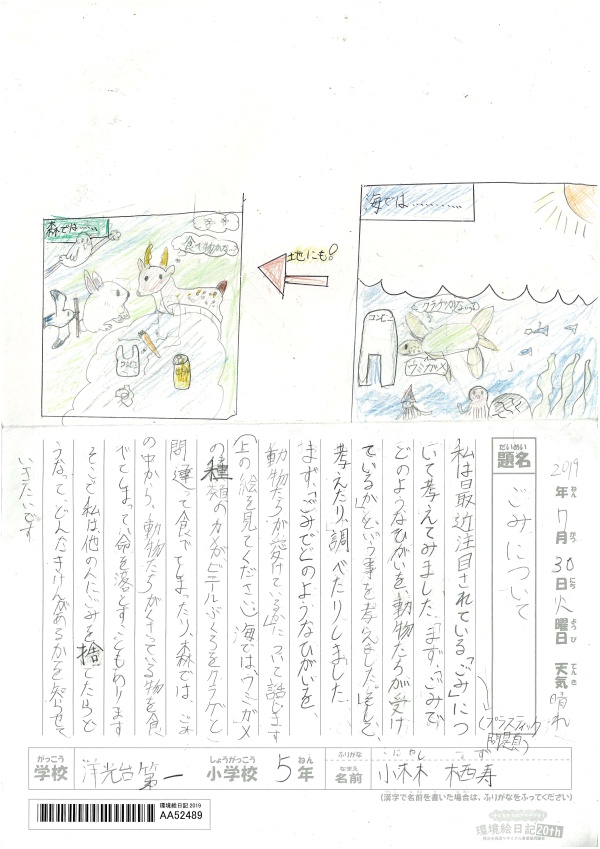 海では…………
クラゲかな…
コンビニ
ウミガメ
地にも!
森では……
食べ物かな…
2019年7月30日火曜日 天気 晴れ
ねん がつ にち ようび てんき
だいめい
題名 ごみについて
私は最近注目されている「ごみ」につ
(プラスティック問題)
いて考えてみました。「まず、ごみで
どのようなひがいを、動物たちが受け
ているか」という事を考えました。そして、
考えたり、調べたりしました。
まず、「ごみでどのようなひがいを、
動物たちが受けているか」について話します
(上の絵を見てください)海では、ウミガメ
の種類のカメがビニールぶくろをクラゲと
間違って食べてしまったり、森では、ごみ
の中から、動物たちがすっている物を食
べてしまって、命を落とすこともあります
そこで私は他の人にごみを捨てたらど
うなって、どんなきけんがあるかを知らせて
いきたいです
がっこう しょうがっこう ねん ふりがな
学校 洋光台第一小学校 5年
なまえ
名前 小林 栖寿
(漢字で名前を書いた場合は、ふりがなをふってください)
環境絵日記 2019
AA52489
環境絵日記20th